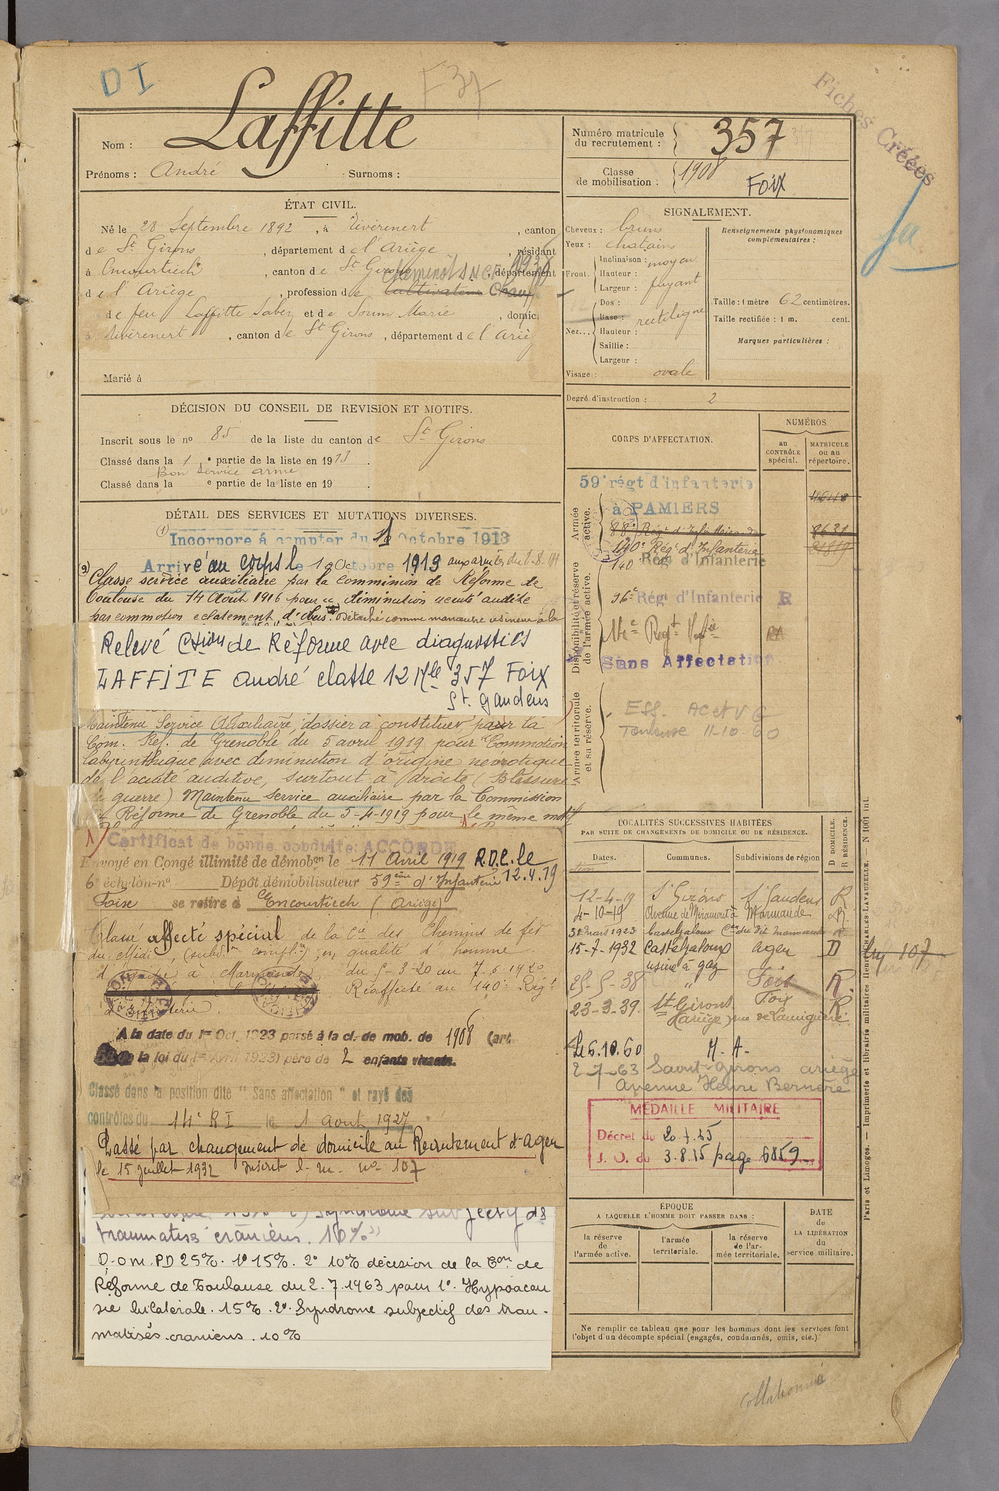 D I
F 37
Fiches Créées
Nom : Laffitte
Prénoms : André Surnoms :
Numéro matricule du recrutement : 357
Classe de mobilisation : 1908 Foix
ÉTAT CIVIL.
Né le 28 Septembre 1892, à Rivèrenert, canton
de St Girons, département de l'Ariège, résidant
à Encourtiech, canton de St Girons, département
Cheminot S.N.C.F. 1939
de l'Ariège, profession de Cultivateur Chauf
de feu Laffitte Jaber et de Soum Marie, domic.
à Rivèrenert, canton de St Girons, département de l'Ariè
Marié à
SIGNALEMENT.
Cheveux : bruns
Yeux : chatain
Front. Inclinaison : moyen
Hauteur :
Largeur : fuyant
Nez... Dos :
Base : rectiligne
Hauteur :
Saillie :
Largeur :
Visage : ovale
Renseignements physionomiques complémentaires :
Taille : 1 mètre 62 centimètres.
Taille rectifiée : 1 m. cent.
Marques particulières :
Degré d'instruction : 2
DÉCISION DU CONSEIL DE REVISION ET MOTIFS.
Inscrit sous le n° 85 de la liste du canton de St Girons
Classé dans la 1e partie de la liste en 1913.
Bon service armé
Classé dans la e partie de la liste en 19 .
DÉTAIL DES SERVICES ET MUTATIONS DIVERSES.
Incorporé à compter du 1 Octobre 1913
Arrivé au corps le 1 Octobre 1913 aux armées du 2.8.14
Classé service auxiliaire par la commission de Réforme de
Toulouse du 14 Août 1916 pour diminution acuité auditive
par commotion éclatement d'obus. Détaché comme manœuvre usineur à la
Relevé Cion de Réforme avec diagnostics
LAFFITE André classe 12 Mle 357 Foix
St. Gaudens
Maintenu Service Auxiliaire, dossier à constituer par la
Com. Réf. de Grenoble du 5 avril 1919 pour "Commotion
labyrinthique avec diminution d'origine névrotique
de l'acuité auditive, surtout à droite (Blessure
de guerre) Maintenu service auxiliaire par la Commission
de Réforme de Grenoble du 5-4-1919 pour le même motif
Certificat de bonne conduite ACCORDÉ
Envoyé en Congé illimité de démobon le 11 Avril 1919 R.D.C. le 12.4.19
6e échelon n° Dépôt démobilisateur 59ème d'Infanterie
Foix se retire à Encourtiech (Ariège)
Classé affecté spécial de la Cie des Chemins de fer
du Midi, (subdon complre) en qualité d'homme
d'équipe à Marmande du 5-3-20 au 7-6-1920
Réaffecté au 140e Régt
d'Infanterie.
A la date du 1er Oct. 1923 passé à la cl. de mob. de 1908 (art
de la loi du 1er Avril 1923) père de 2 enfants vivants.
Classé dans la position dite "Sans affectation" et rayé des
contrôles du 14e R I le 1 août 1927
Passé par changement de domicile au Recrutement d'Agen
le 15 juillet 1932 Inscrit l. m. n° 107
traumatisés crâniens. 10%"
D.O.M. PD 25%. 1° 15%. 2° 10% décision de la Con de
Réforme de Toulouse du 2.7.1963 pour 1°. Hypoacou
sie bilatérale. 15%. 2°. Syndrome subjectif des trau-
matisés crâniens. 10%
CORPS D'AFFECTATION.
NUMÉROS
AU CONTRÔLE spécial.
MATRICULE ou au répertoire.
Armée active.
59e régt d'infanterie
à PAMIERS
88e Rég. d'Infanterie
140e Rég. d'Infanterie
140e Régi d'Infanterie
Disponibilité et réserve de l'armée active.
Régi d'Infanterie R
Sans Affectation
Armée territoriale et sa réserve.
Eff. AC et VG
Toulouse 11-10-60
LOCALITÉS SUCCESSIVES HABITÉES
PAR SUITE DE CHANGEMENTS DE DOMICILE OU DE RÉSIDENCE.
Dates. Communes. Subdivisions de région
D DOMICILE. R RÉSIDENCE.
12-4-19 St Girons St Gaudens R
4-10-19 Avenue de Miramont à Marmande R
31 Mars 1923 Casteljaloux
15-7-1932 Casteljaloux Agen D Ins 107
usine à gaz
25-5-38 " Foix R
23-3-39 St Girons Foix R
(Ariège)
Le 6.10.60 M.A.
2-7-63 Saint-Girons Ariège
Avenue Henri Bernère
MÉDAILLE MILITAIRE
Décret du 20.7.35
J. O. du 3.8.35 page 6859
ÉPOQUE
A LAQUELLE L'HOMME DOIT PASSER DANS :
la réserve de l'armée active.
l'armée territoriale.
la réserve de l'armée territoriale.
DATE de LA LIBÉRATION du service militaire.
Ne remplir ce tableau que pour les hommes dont les services font
l'objet d'un décompte spécial (engagés, condamnés, omis, etc.)
Paris et Limoges. — Imprimerie et librairie militaires Henri CHARLES-LAVAUZELLE. N° 1001 int.
Collationné